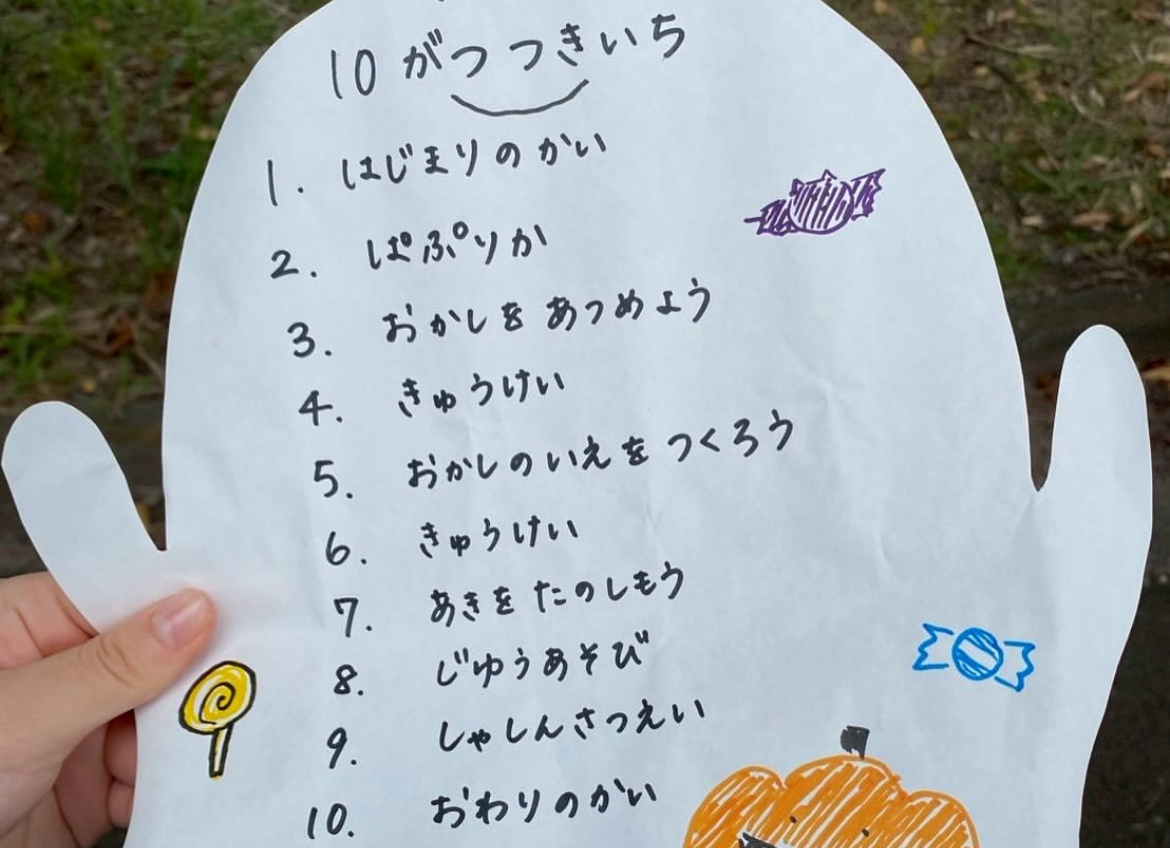 10がつつきいち
1. はじまりのかい
2. ぱぷりか
3. おかしをあつめよう
4. きゅうけい
5. おかしのいえをつくろう
6. きゅうけい
7. あきをたのしもう
8. じゆうあそび
9. しゃしんさつえい
10. おわりのかい